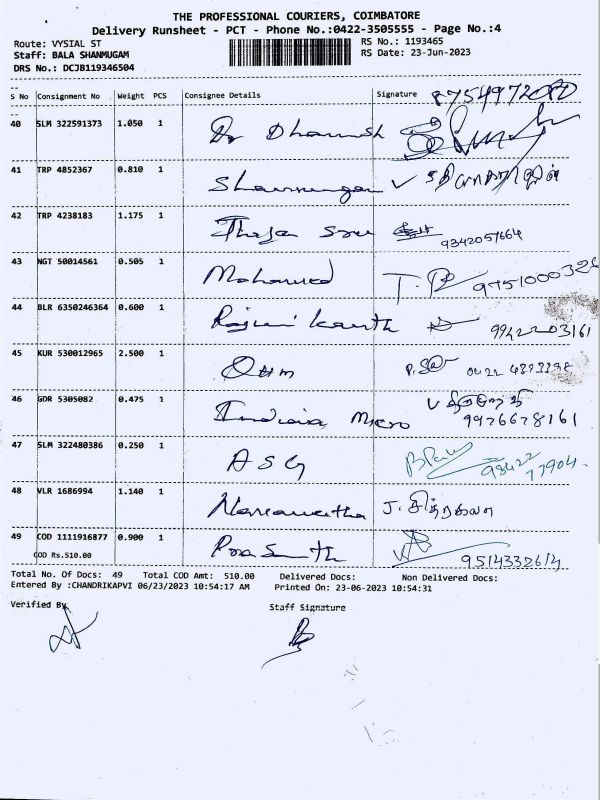 THE PROFESSIONAL COURIERS, COIMBATORE
Delivery Runsheet - PCT - Phone No.:0422-3505555 - Page No.:4
Route: VYSIAL ST RS No.: 1193465
Staff: BALA SHANMUGAM RS Date: 23-Jun-2023
DRS No.: DCJB119346504
S No Consignment No Weight PCS Consignee Details Signature
40 SLM 322591373 1.050 1 Dr Dhanush
41 TRP 4852367 0.810 1 Shanmugam
42 TRP 4238183 1.175 1 9342057664
43 NGT 50014561 0.505 1 Mohamed
44 BLR 6350246364 0.600 1 Rajini Kanth 9942203161
45 KUR 530012965 2.500 1
46 GDR 5305082 0.475 1 Micro 9976678161
47 SLM 322480386 0.250 1 ASG 98422 77904
48 VLR 1686994 1.140 1 J. சித்ரகலா
49 COD 1111916877 0.900 1 Prasanth 9514332614
COD Rs.510.00
Total No. Of Docs: 49 Total COD Amt: 510.00 Delivered Docs: Non Delivered Docs:
Entered By :CHANDRIKAPVI 06/23/2023 10:54:17 AM Printed On: 23-06-2023 10:54:31
Verified By Staff Signature